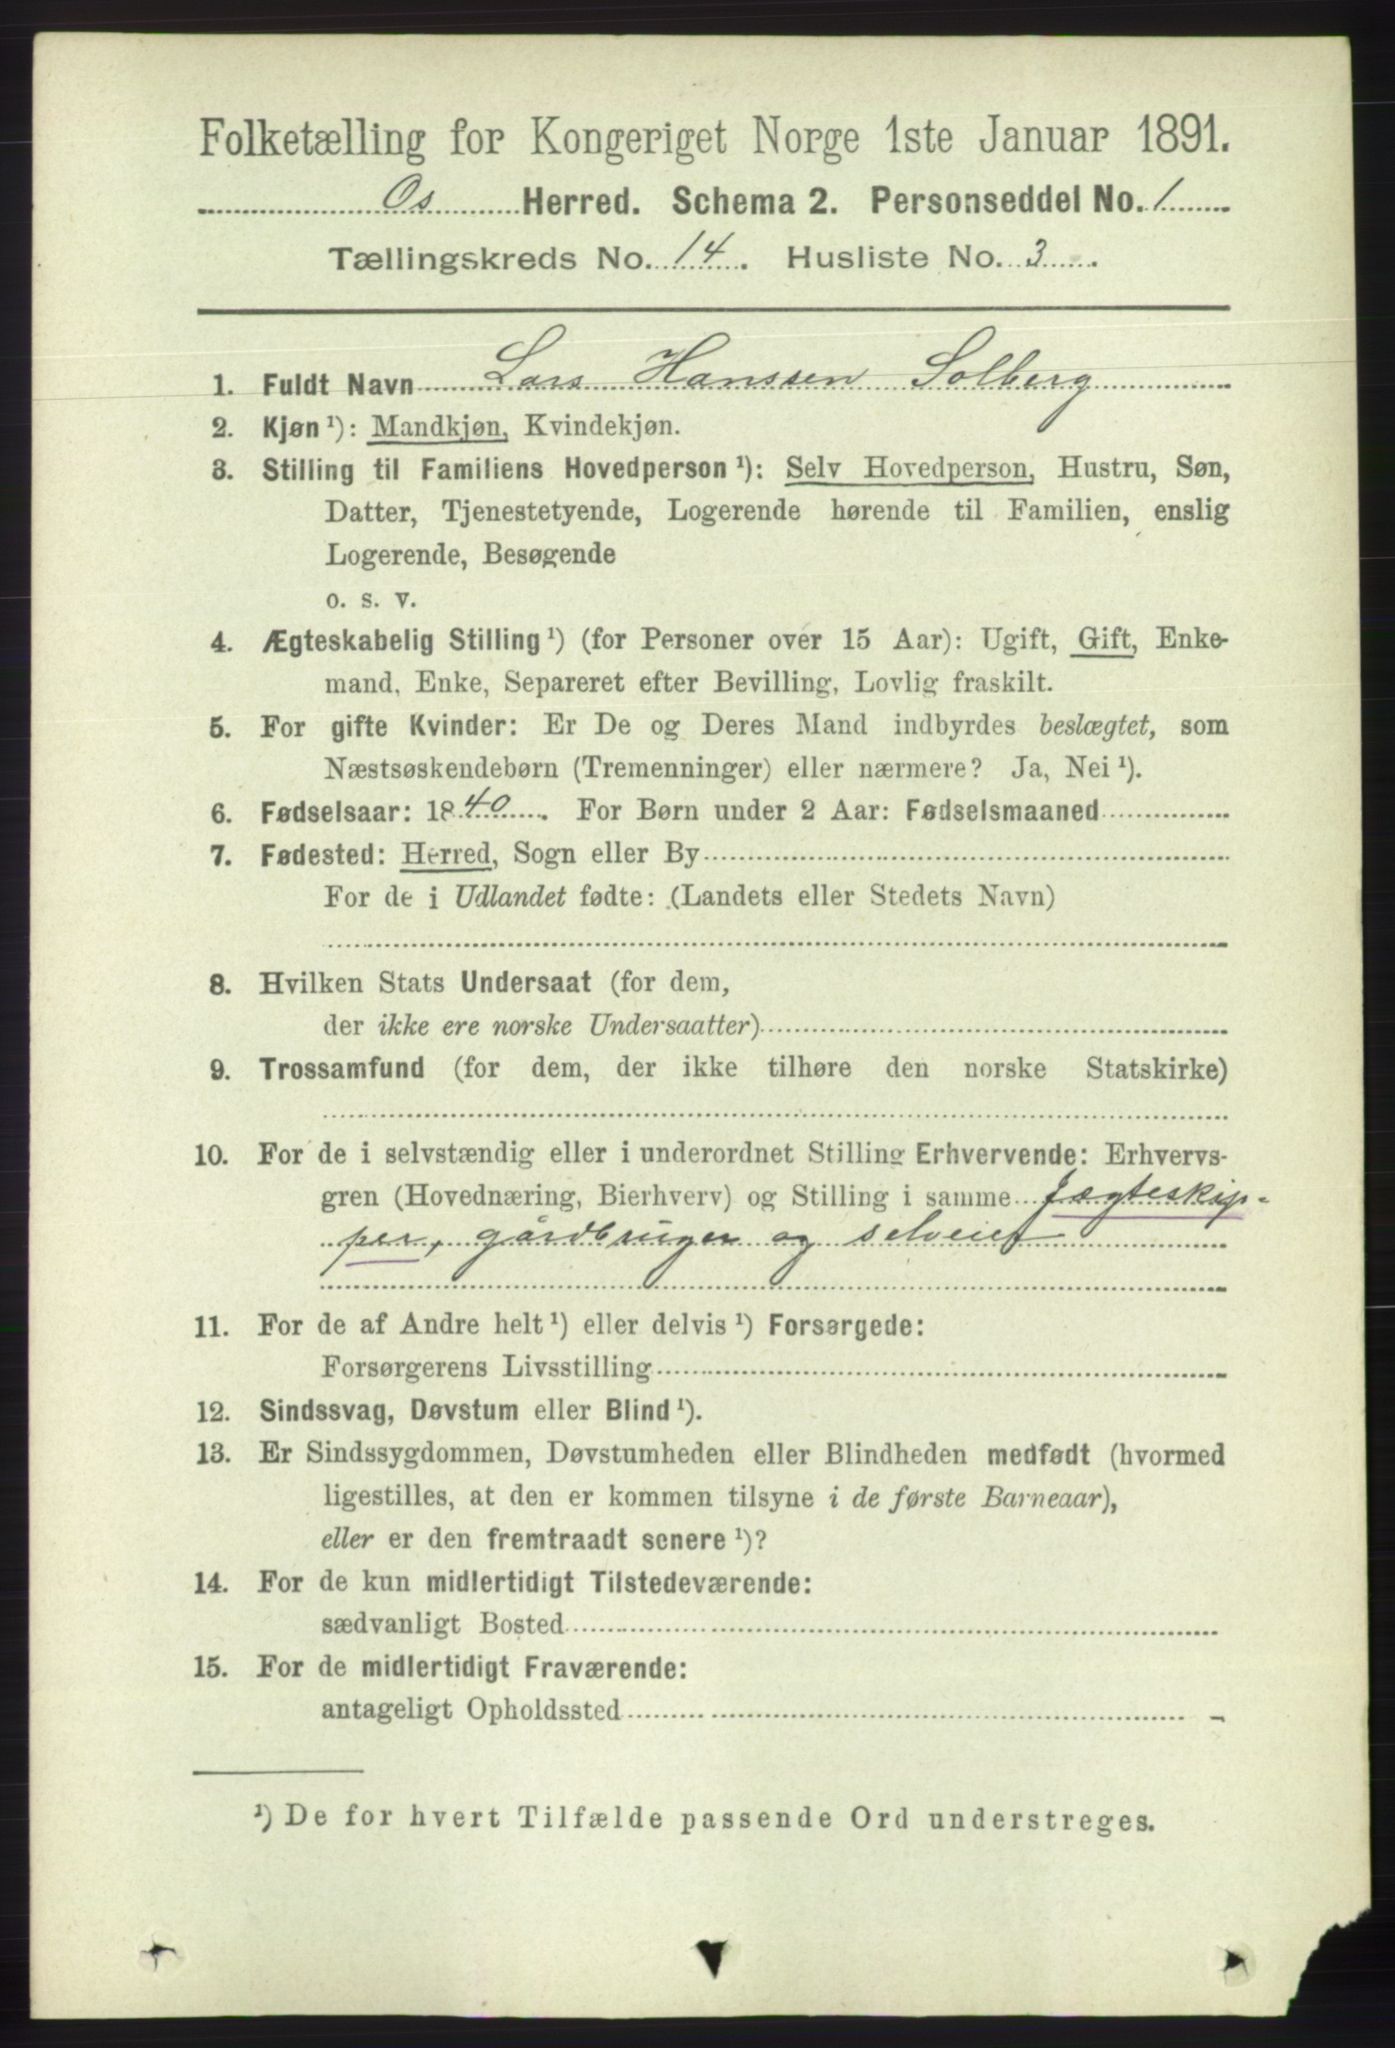 Folketælling for Kongeriget Norge 1ste Januar 1891.
Os Herred. Schema 2. Personseddel No. 1
Tællingskreds No. 14. Husliste No. 3.
1. Fuldt Navn Lars Hanssen Solberg
2. Kjøn ¹): Mandkjøn, Kvindekjøn.
3. Stilling til Familiens Hovedperson ¹): Selv Hovedperson, Hustru, Søn,
Datter, Tjenestetyende, Logerende hørende til Familien, enslig
Logerende, Besøgende
o. s. v.
4. Ægteskabelig Stilling ¹) (for Personer over 15 Aar): Ugift, Gift, Enke-
mand, Enke, Separeret efter Bevilling, Lovlig fraskilt.
5. For gifte Kvinder: Er De og Deres Mand indbyrdes beslægtet, som
Næstsøskendebørn (Tremenninger) eller nærmere? Ja, Nei ¹).
6. Fødselsaar: 1840. For Børn under 2 Aar: Fødselsmaaned
7. Fødested: Herred, Sogn eller By
For de i Udlandet fødte: (Landets eller Stedets Navn)
8. Hvilken Stats Undersaat (for dem,
der ikke ere norske Undersaatter)
9. Trossamfund (for dem, der ikke tilhøre den norske Statskirke)
10. For de i selvstændig eller i underordnet Stilling Erhvervende: Erhvervs-
gren (Hovednæring, Bierhverv) og Stilling i samme Jægteskip-
per, gårdbruger og selveier
11. For de af Andre helt ¹) eller delvis ¹) Forsørgede:
Forsørgerens Livsstilling
12. Sindssvag, Døvstum eller Blind ¹).
13. Er Sindssygdommen, Døvstumheden eller Blindheden medfødt (hvormed
ligestilles, at den er kommen tilsyne i de første Barneaar),
eller er den fremtraadt senere ¹)?
14. For de kun midlertidigt Tilstedeværende:
sædvanligt Bosted
15. For de midlertidigt Fraværende:
antageligt Opholdssted
¹) De for hvert Tilfælde passende Ord understreges.